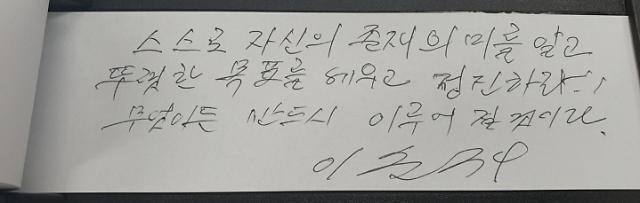 스스로 자신의 존재의 미를 알고
뚜렷한 목표를 세우고 정진하라..!
무엇이든 반드시 이루어 질것이라.